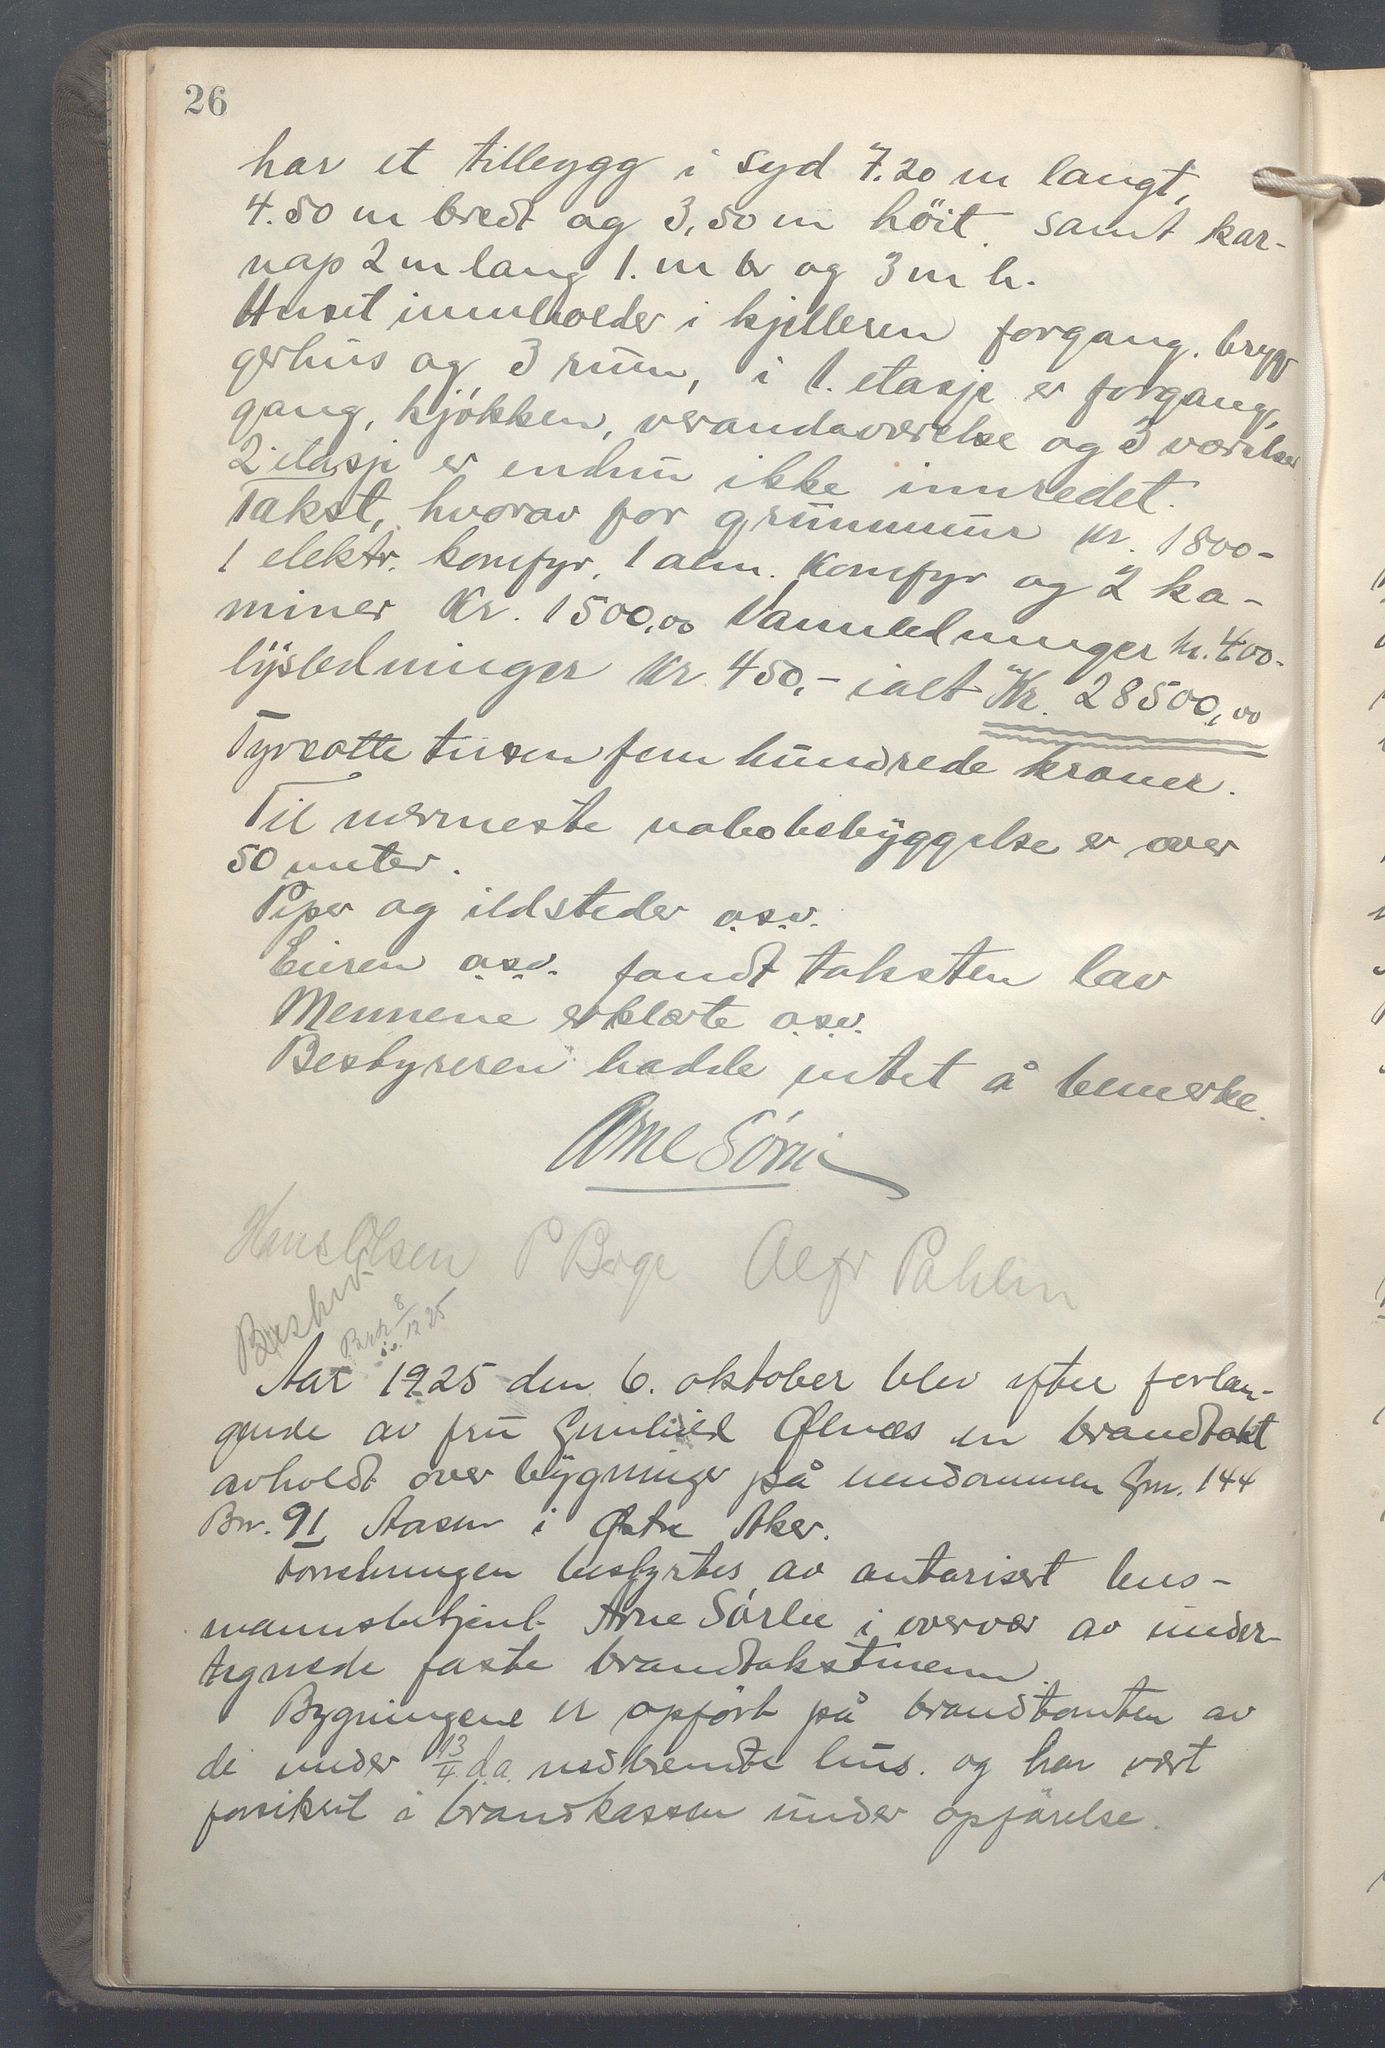 26
har et tillegg i syd 7.20 m langt,
4.50 m bredt og 3,50 m höit. samt kar-
nap 2 m lang 1. m br og 3 m h.
Huset inneholder i kjelleren forgang. bryg
gerhus og 3 rum, i 1. etasje er forgang,
gang, kjøkken, verandaværelse og 3 værelser
2. etasje er endnu ikke innredet.
Takst, hvorav for grunnmur kr. 1800-
1 elektr. komfyr, 1 alm. komfyr og 2 ka-
miner Kr. 1500,00 Vannledninger kr. 400-
lysledninger Kr. 450,- ialt Kr. 28500,00
Tyveotte tusen fem hundrede kroner.
Til nærmeste nabobebyggelse er over
50 meter.
Piper og ildsteder o.s.v.
Eieren o.s.v. fandt taksten lav
Mennene erklærte o.s.v.
Bestyreren hadde intet å bemerke.
Arne Sørli
Hans Olsen P Berge Alfr Pahlm
Beskr.
8/12 25
Aar 1925 den 6. oktober blev efter forlan-
gende av fru Gunhild Ølnæs en brandtakt
avholdt over bygninger på eiendommen Gnr. 144
Bnr. 91 Aasen i Østre Aker.
Forretningen bestyrtes av autorisert lens-
mannsbetjent Arne Sörlie i overvær av under-
tegnede faste brandtakstmenn.
Bygningene er opfört på brandtomten av
de under 13/4 d.a. nedbrendte hus. og har vært
forsikret i brandkassen under opförelse.